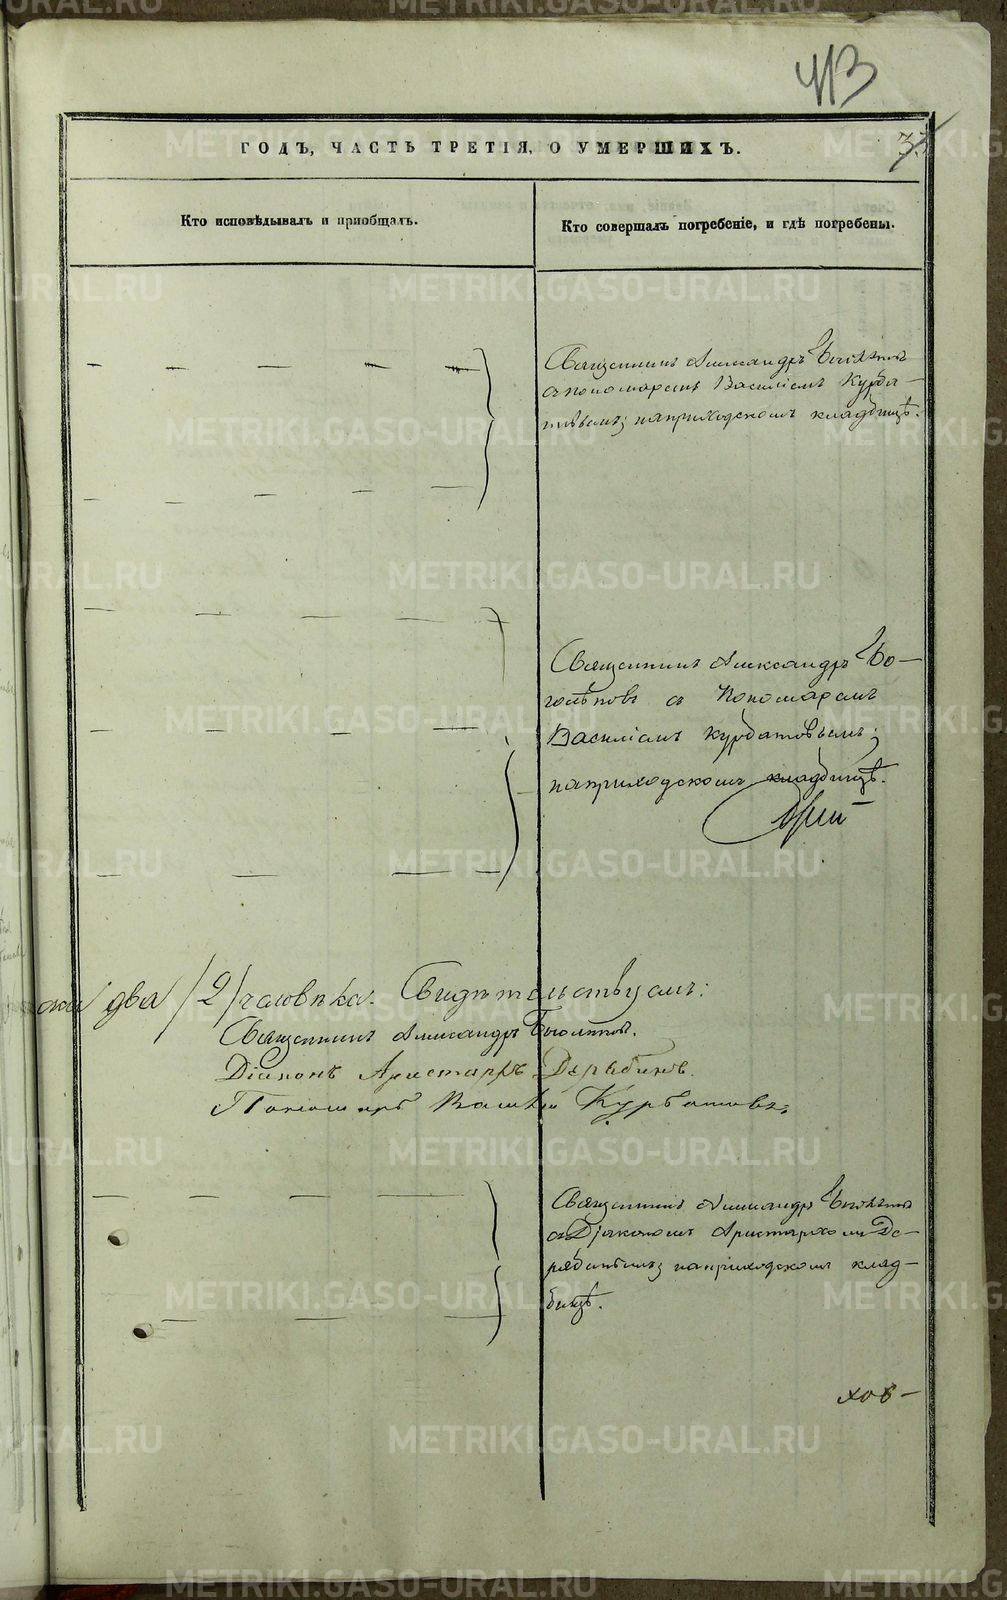 413
33
ГОДЪ, ЧАСТЬ ТРЕТІЯ, О УМЕРШИХЪ.
Кто исповѣдывалъ и приобщалъ.
Кто совершалъ погребеніе, и гдѣ погребены.
Священникъ Александръ
с пономаремъ Василіемъ Курба-
товымъ; на приходскомъ кладбищѣ.
Священникъ Александръ Бо-
голѣповъ съ Пономаремъ
Василіемъ Курбатовымъ;
на приходскомъ кладбищѣ.
два /2/ человѣка. Свидѣтельствуемъ:
Священникъ Александръ Боголѣповъ.
Діаконъ Аристархъ Дерябинъ.
Пономарь Василій Курбатовъ.
Священникъ Александръ
съ Діакономъ Аристархомъ Де-
рябинымъ; на приходскомъ клад-
бищѣ.
хов-
METRIKI.GASO-URAL.RU